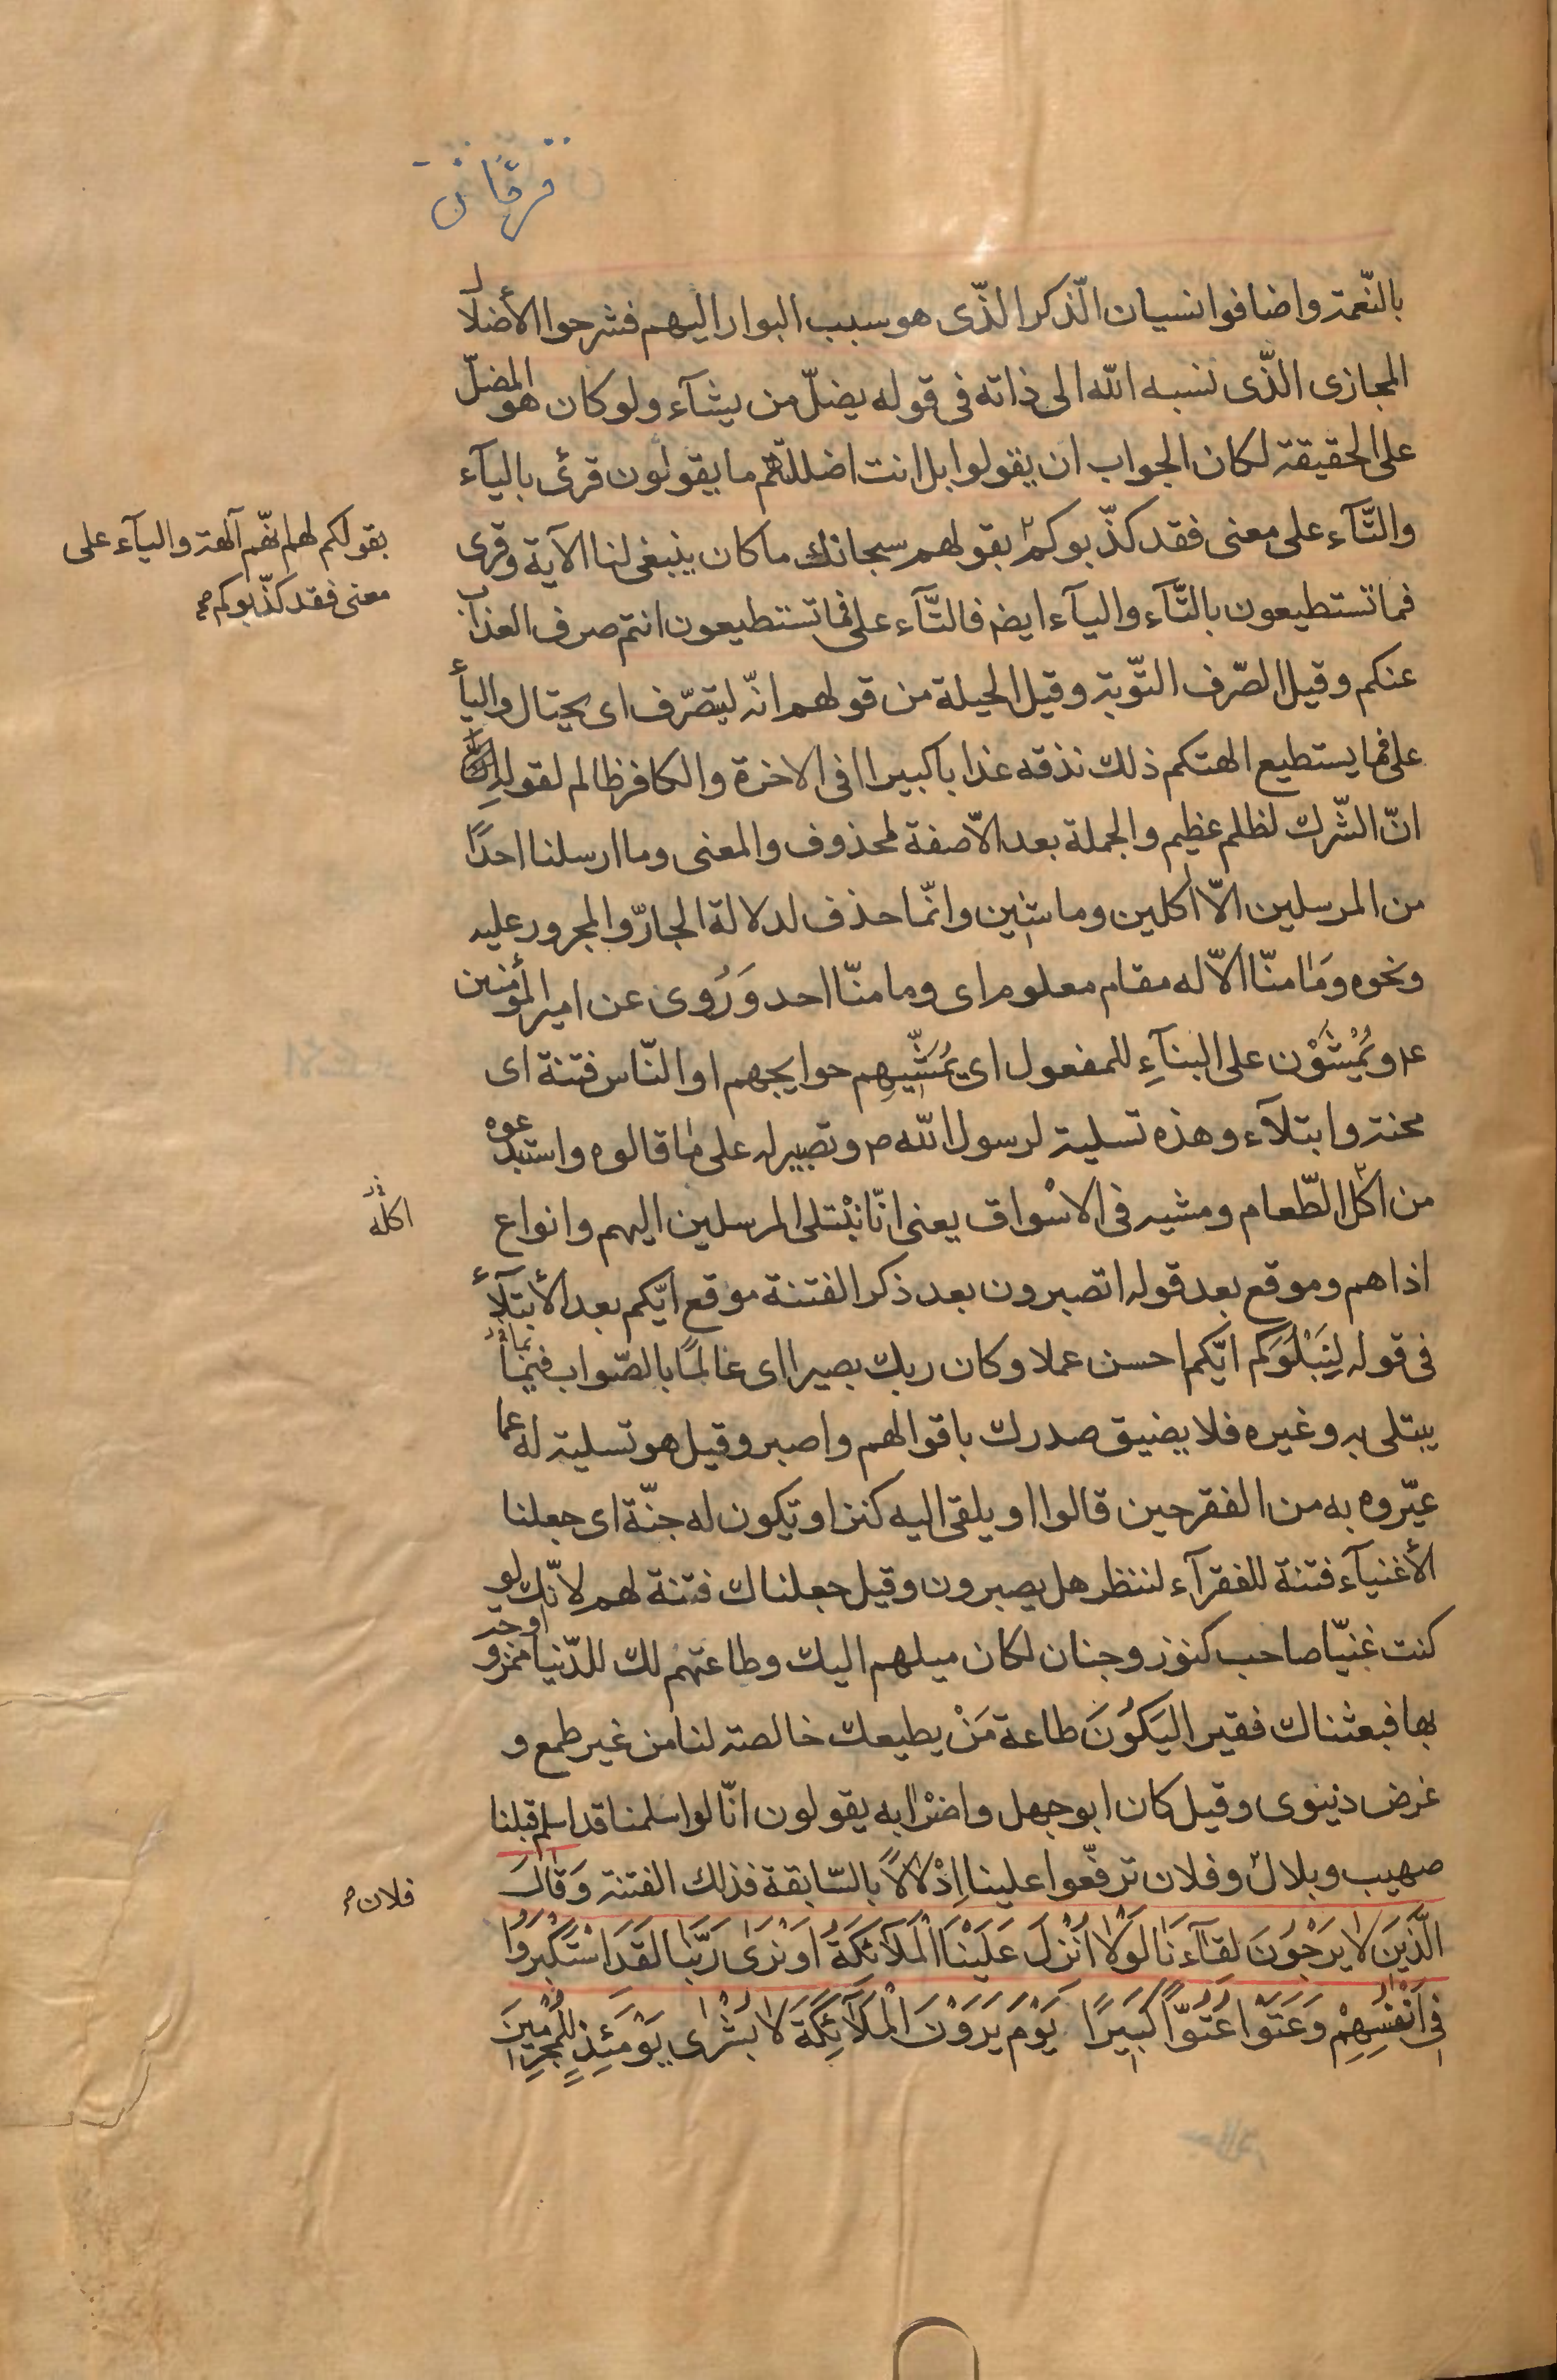 فرقان
بالنّعمة واضافوا نسيان الّذكر الذّى هو سبب البوار اليهم فشرحوا الأضلال
المجازى الذّى ننسبه الله الى ذاته فى قوله يضلّ من يشآء ولو كان هو المضلّ
على الحقيقة لكان الجواب ان يقولوا بل انت اضللتهم ما يقولون قرئ باليآء
والتّآء على معنى فقد كذّبوكم بقولهم سبحانك ما كان ينبغى لنا الآية وقرى
بقولكم لهم انّهم آلهة واليآء على
معنى فقد كذّبوكم صح
فما تستطيعون بالتّآء واليآء ايضا فالتّآء على فما تستطيعون انتم صرف العذاب
عنكم وقيل الصّرف التّوبة وقيل الحيلة من قولهم انّه ليتصرّف اى يحتال واليآء
على فما يستطيع الهتكم ذلك نذقه عذابا كبيرا فى الاخرة والكافر ظالم لقوله
انّ الشّرك لظلم عظيم والجملة بعد الاّ صفة لمحذوف والمعنى وما ارسلنا احدًا
من المرسلين الاّ اكلين وماشين وانّما حذف لدلالة الجارّ والمجرور عليه
ونحوه وَمَا منّا الاّ له مقام معلوم اى وما منّا احد وَرُوى عن امير المؤمنين
ع م ويُمْشَوْن على البنآءِ للمفعول اى يُمَشّيهِم حوايجهم او النّاس فتنة اى
محنة وابتلآء وهذه تسلية لرسول الله ص وتصبير له على ما قالوه واستبدعوه
من اكل الطّعام ومشيه فى الاسْواق يعنى انّا نبْتلى المرسلين اليهم وانواع
اكله
اذاهم وموقع بعد قوله اتصبرون بعد ذكر الفتنة موقع ايّكم بعد الأبتلآء
فى قوله لِيَبْلُوَكم ايّكم احسن عملا وكان ربك بصيرا اى عالمًا بالصّواب فيما
يبتلى به وغيره فلا يضيق صدرك باقوالهم واصبر وقيل هو تسلية له عما
عيّروه به من الفقر حين قالوا او يلقى اليه كنز او تكون له جنّة اى جعلنا
الأغنيآء فتنة للفقرآء لننظر هل يصبرون وقيل جعلناك فتنة لهم لانّك لو
كنت غنيّا صاحب كنوز وجنان لكان ميلهم اليك وطاعتهم لك للدّنيا او ممزوجة
بها فبعثناك فقيرا ليَكُوَنَ طاعة مَنْ يطيعك خالصة لنا من غير طمع و
غرض دنيوى وقيل كان ابو جهل واضرابه يقولون انّا لو اسلمنا قد اسلم قبلنا
صهيب وبلال وفلان ترفّعوا علينا اِدْلالاً بالسّابقة فذلك الفتنة وَقَالَ
فلان صح
الَّذَينَ لا يَرْجُونَ لقَآءَنَا لَوْلا اُنْزِلَ عَلَيْنَا الْمَلآئكَةُ اَوْ نَرَى رَبَّنَا لَقَدَ اسْتَكْبَرُوا
فِى اَنْفُسِهِمْ وَعَتَوْا عُتُوّاً كَبيَرًا يَوْمَ يَرَوْنَ الْمَلآئِكَةَ لا بُشْرَى يَوْمَئِذٍ لِلْمُجْرِمَينَ